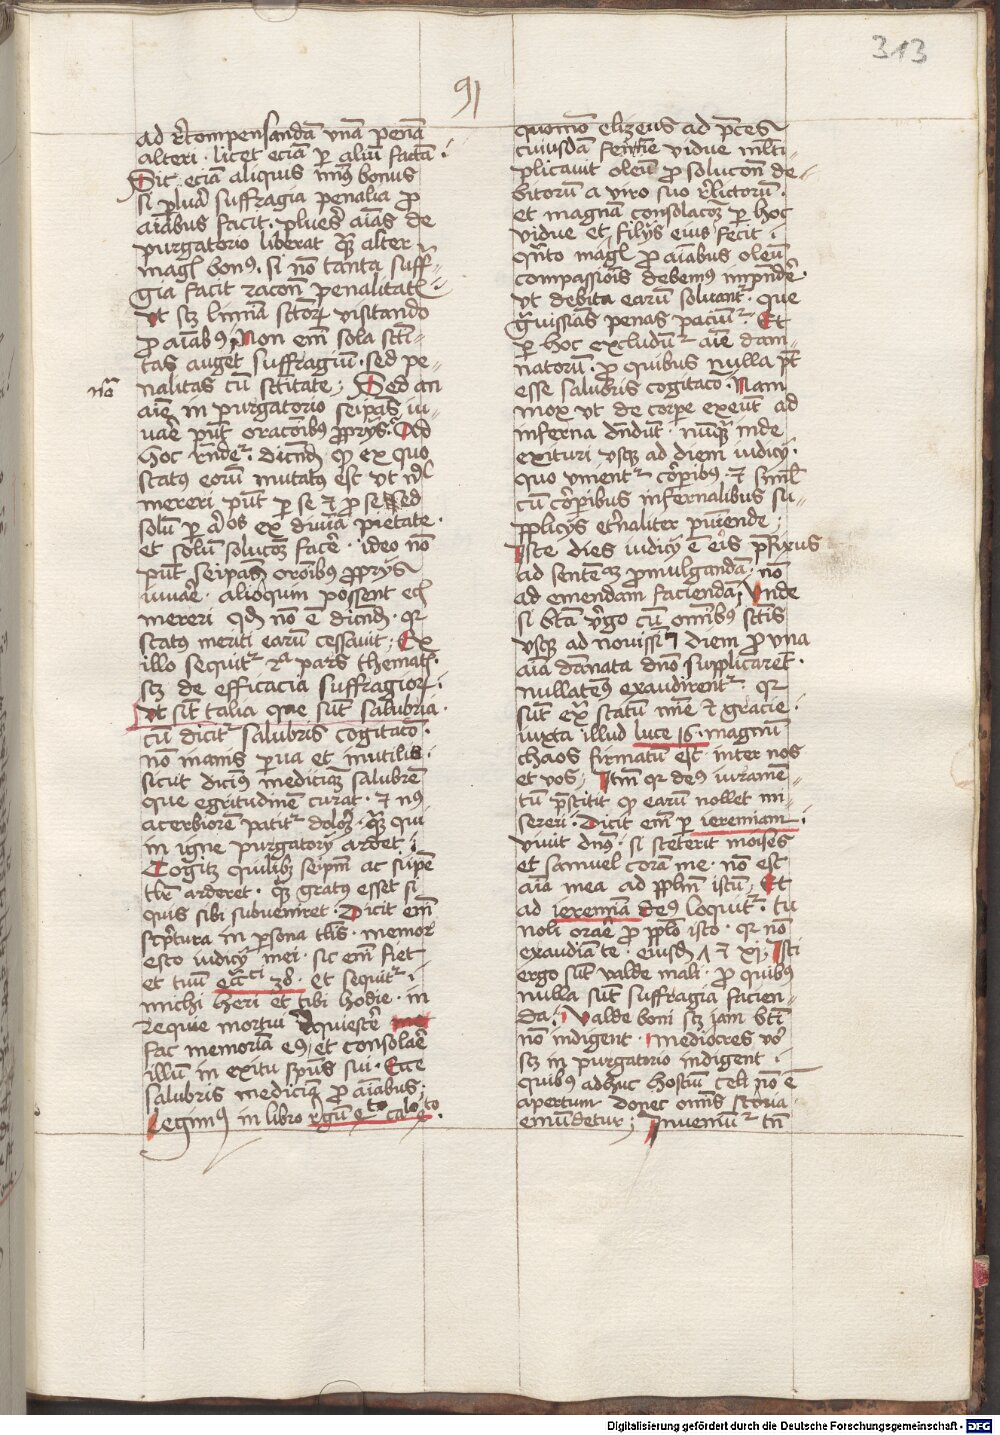 313
91
ad recompensandā vnā penā
alteri · licet eciā per aliū factā ·
Sit eciā aliquis minꝰ bonus
si plura suffragia penalia pro
aīabus facit · plures aīas de
purgatorio liberat quā alter
magis bonꝰ · si nō tanta suff-
gia facit racōne penalitatis
vt scz limina sctōrum visitando
pro aīabꝰ · Non em̄ sola scti-
tas auget suffragiū · sed pe-
nalitas cū sctitate ; Sed an
nōa
aīe in purgatorio seipas iu-
uare pn̄t oracōibus proprijs · Ad
hoc rn̄detur · dicendū quod ex quo
status eorū mutatus est vt nl
mereri pn̄t per se et pro se Sed
solū per alios ex diuina pietate ·
et solū solucōem facere · ideo nō
pn̄t seipas orōnibus proprijs
iuuare · alioquin possent eciā
mereri qd nō ē dicendū · quia
status meriti earū cessauit · Ex
illo sequitur 2a pars thematis ·
scz de efficacia suffragiorum ·
Vt sūt talia que sūt salubria ·
cū dicitur salubris cogitacō ·
nō inanis parua et inutilis ·
sicut dicimꝰ medicinā salubrē
que egritudinē curat · et
acerbiorē patitur dolorē · quā qui
in igne purgatorij ardet ·
Cogitet quilibet seipm̄ ac si īpe
ibi arderet · quā gratus esset si
quis sibi subueniret · Dicit em̄
scriptura in persona talis · memor
esto iudicij mei · sic em̄ fiet
et tuū eccti 38 · et sequitur ·
michi heri et tibi hodie · in
requie mortui requiescere
fac memoriā eiꝰ et consolare
illū in exitu spiritus sui · Ecce
salubris medicina pro aīabus ;
Legimꝰ in libro regū 4to calo 4to ·
quomō elizeus ad preces
cuiusdā femine vidue ml̄ti-
plicauit oleū pro solucōne de-
bitorū a viro suo relictorū ·
et magnā consolacōem per hoc
vidue et filijs eius fecit ·
quāto magis pro aīabus oleū
compassiōis debemꝰ impendere ·
vt debita earū soluantur · que
grauissimas penas paciūtur · Et
per hoc excluduntur aīe dam-
natorū · pro quibus nulla pt̄
esse salubris cogitaco · Nam
mox vt de corpore exeūt ad
inferna descendūt · nunquā inde
exituri vsque ad diem iudicij ·
quo vnientur corporibus · et simul
cū corporibus infernalibus su-
pplicijs eternaliter puniende ;
Iste dies iudicij ē eis prefixus
ad sentenciā promulgandā · nō
ad emendam faciendā ; Vnde
si bta virgo cū omnibus sctis
vsque ad nouissimū diem pro vna
aīa damnata dno supplicaret ·
nullatenus exaudirentur · quia
sūt extra statū mie et gracie ·
iuxta illud luce 16 · magnū
chaos firmatum est inter nos
et vos ; Itm̄ quia deus iuramē-
tū prestitit quod earū nollet mi-
sereri · Dicit em̄ per ieremiam ·
viuit dnꝰ · si steterit moises
et samuel corā me · nō est
aīa mea ad pplm̄ istū ; Et
ad ieremiā deus loquitur · tu
noli orare pro pplo isto · quia nō
exaudiam te · eiusdem et xj · Isti
ergo sūt valde mali · pro quibus
nulla sūt suffragia facien-
da ; Valde boni scz iam bti
nō indigent · mediocres vero
scz in purgatorio indigent ·
quibus adhuc hostiū celi nō ē
apertum donec omnis scoria
emundetur ; Inueniūtur tn̄
Digitalisierung gefördert durch die Deutsche Forschungsgemeinschaft - DFG